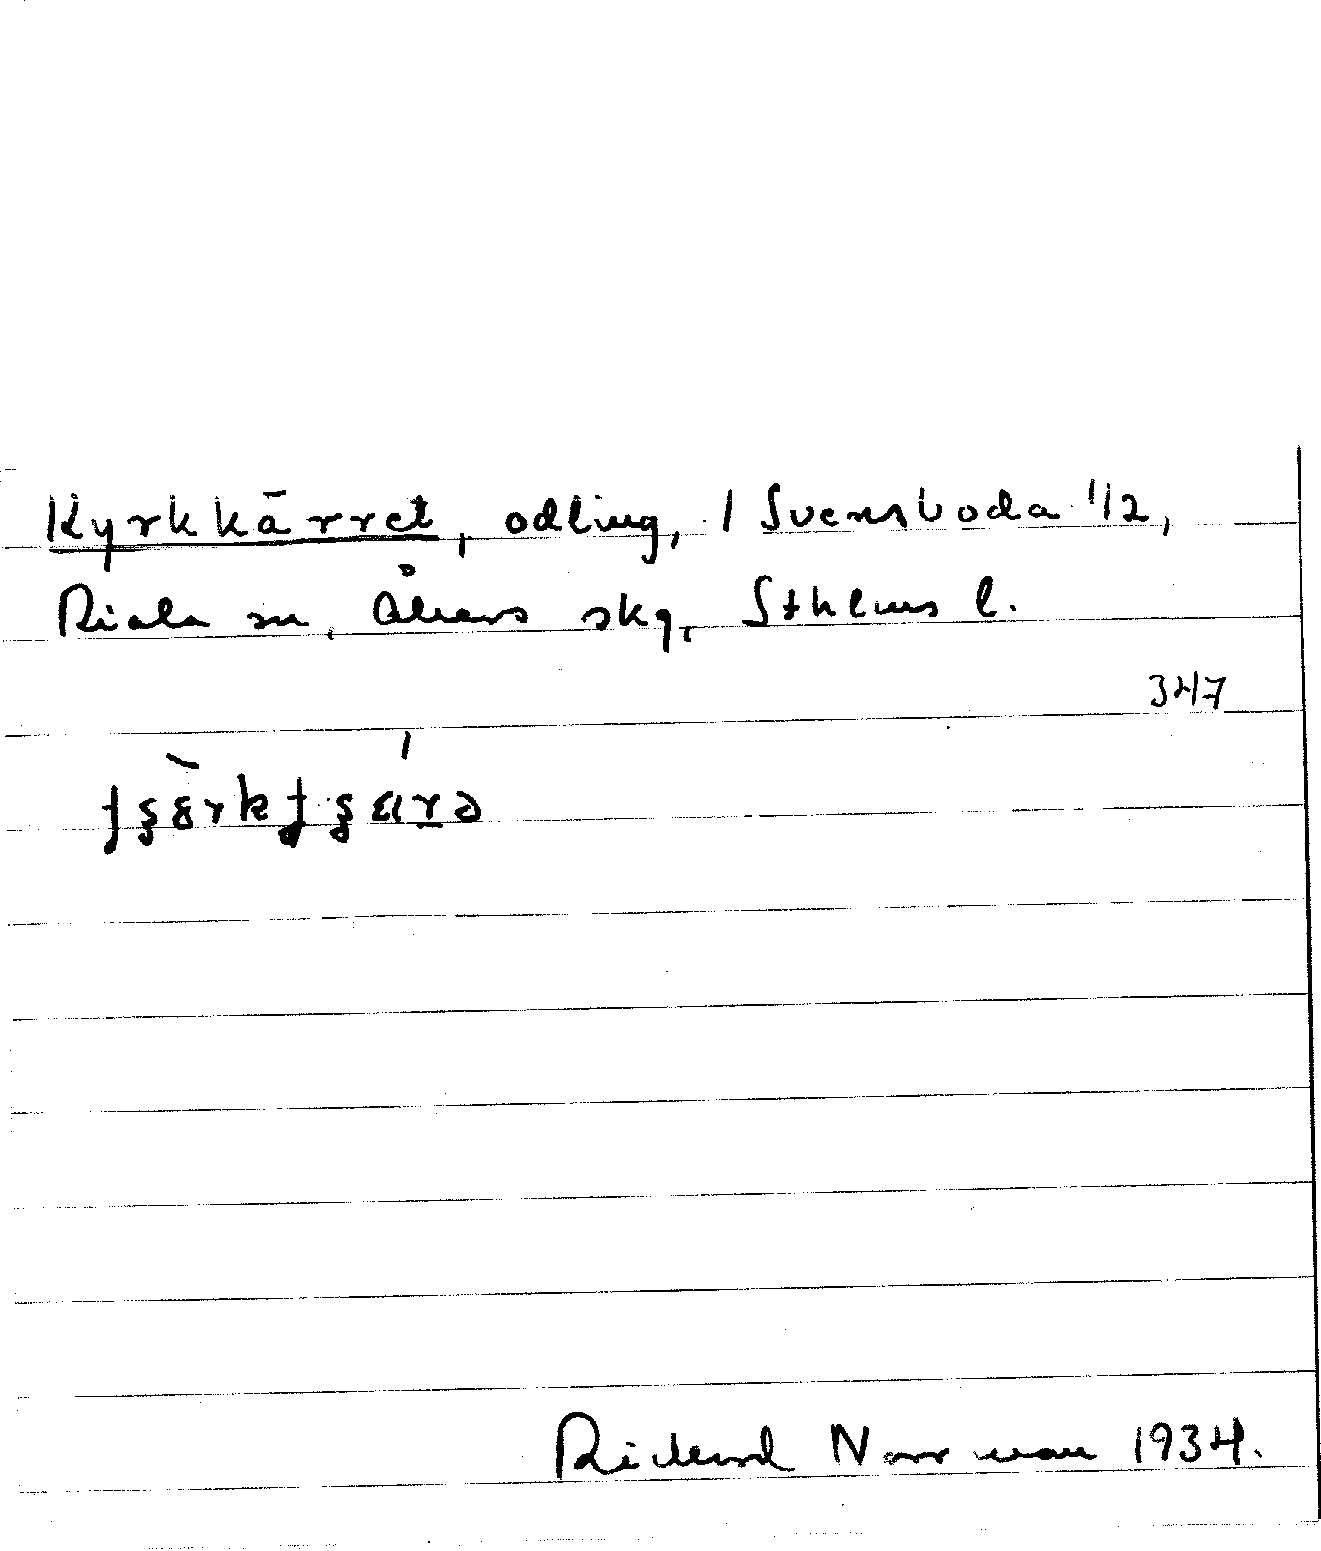 Kyrkkärret, odling, / Svensboda 1/2,
Riala sn, Åkers skg, Sthlms l.
347
Rickard Norrman 1934.